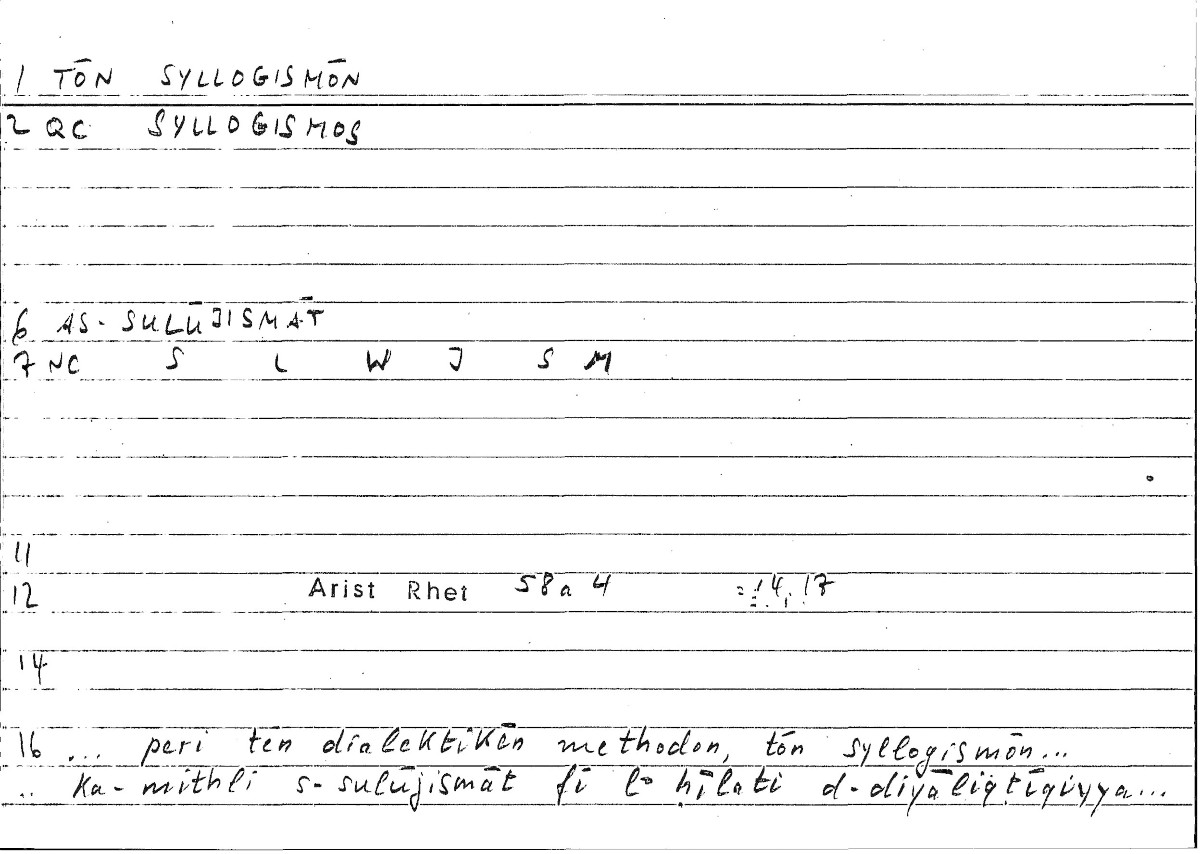 1 TŌN SYLLOGISMŌN
2 QC SYLLOGISMOS
6 AS-SULŪJISMĀT
7 NC S L W J S M
11
12 Arist Rhet 58a 4 = 14, 17
14
16 ... peri tēn dialektikēn methodon, tōn syllogismōn...
.. ka-mithli s-sulūjismāt fī l-ḥīlati d-diyāliqṭīqiyya...